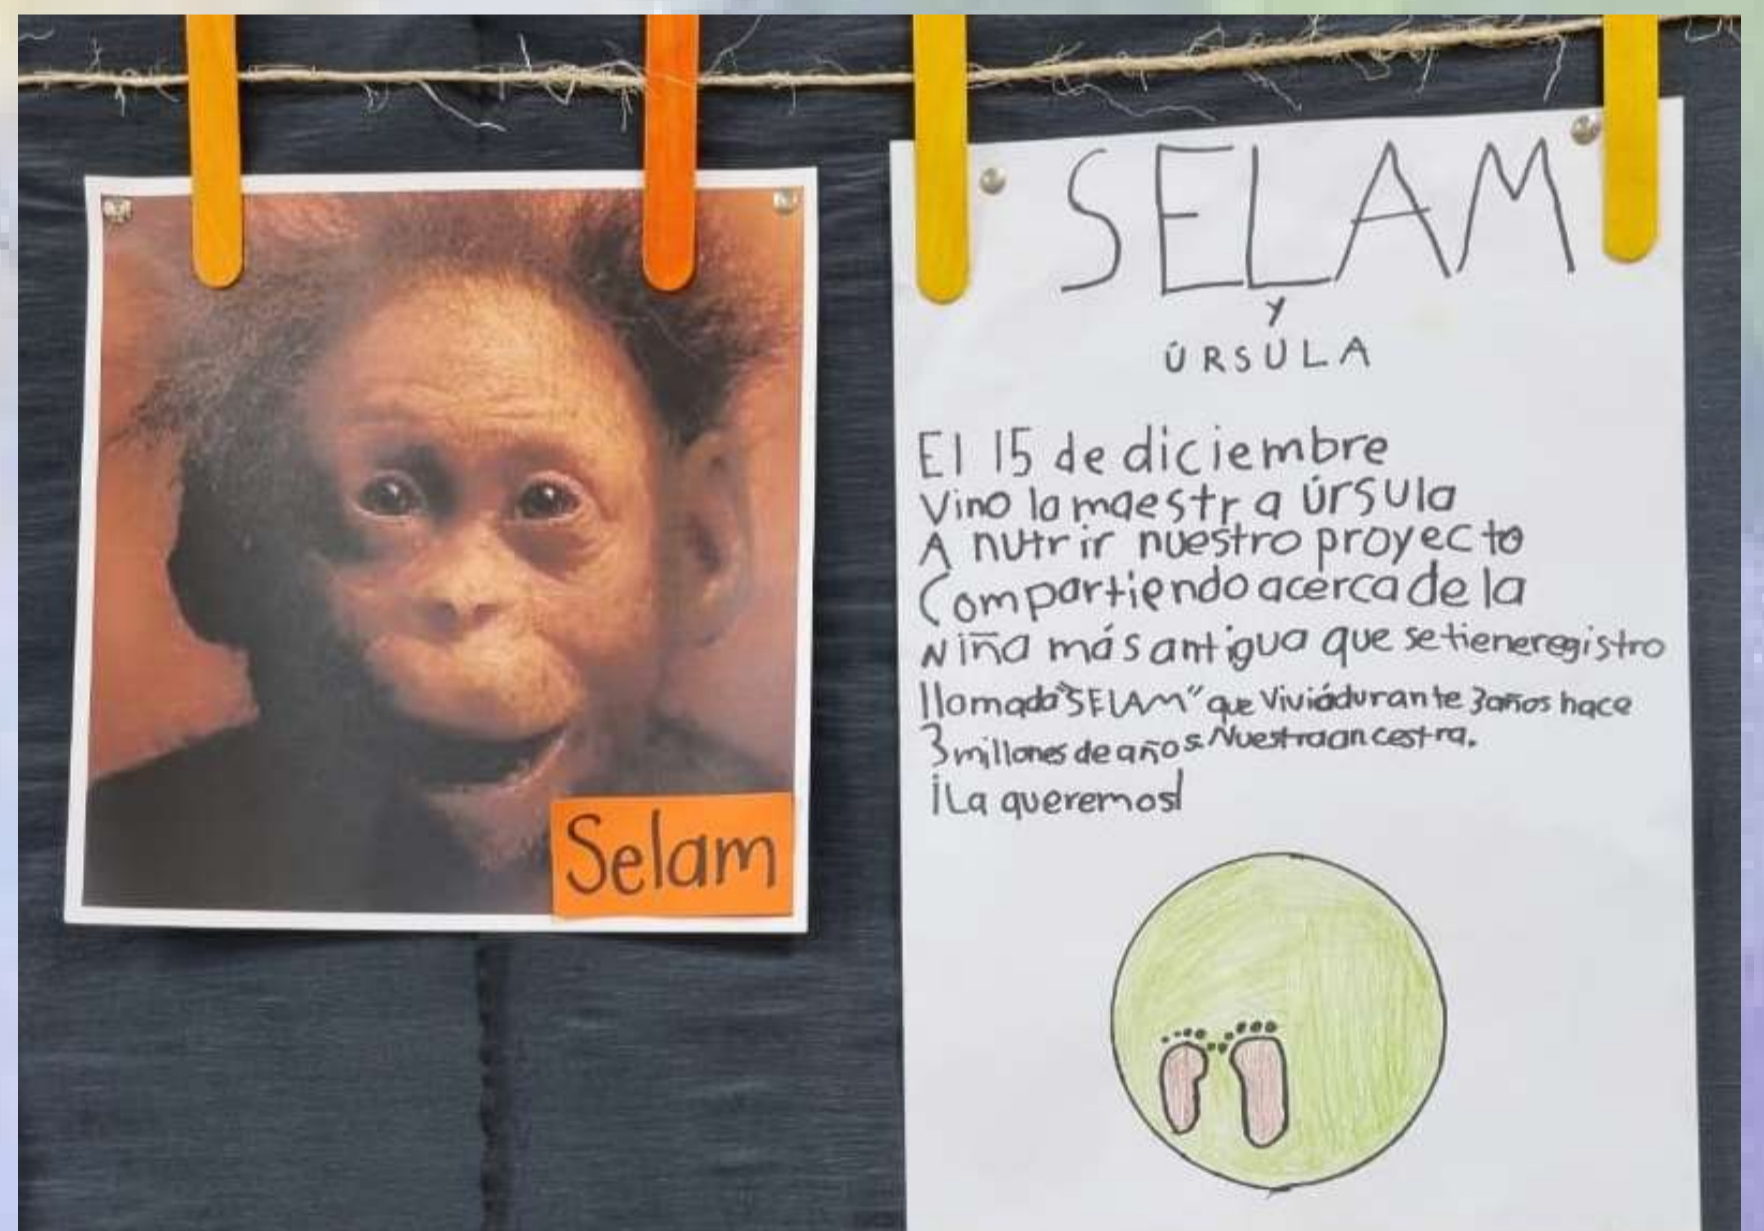 Selam
SELAM
Y
ÚRSULA
El 15 de diciembre
Vino la maestra Úrsula
A nutrir nuestro proyecto
Compartiendo acerca de la
Niña más antigua que se tiene registro
llamada "SELAM" que Vivió durante 3 años hace
3 millones de años. Nuestra ancestra.
¡La queremos!